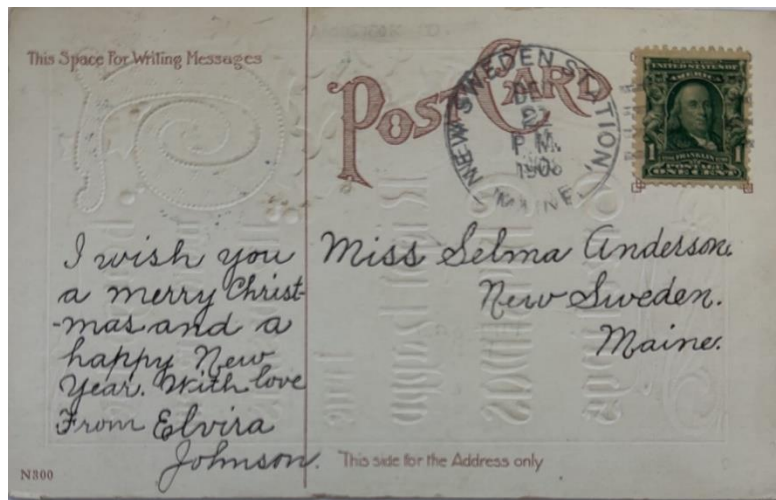 This Space For Writing Messages
POST CARD
NEW SWEDEN STATION,
27
P M.
1908
MAINE.
UNITED STATES OF
AMERICA
1 FRANKLIN 1
POSTAGE
ONE CENT
I wish you
a merry Christ-
-mas and a
happy New
Year. With love
From Elvira
Johnson.
Miss Selma Anderson.
New Sweden.
Maine.
This side for the Address only
N300